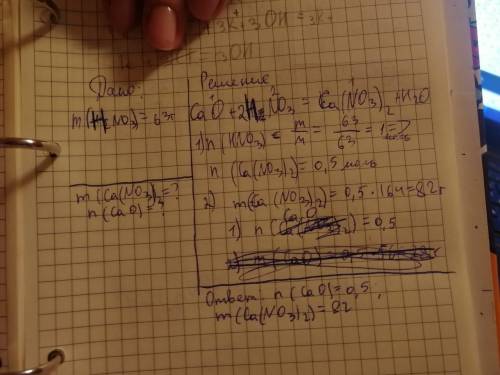 3K + 3OH = 3K+
3OH
Дано:
m(HNO3) = 63г
m(Ca(NO3)2 = ?
n(CaO) = ?
Решение
CaO + 2HNO3 = Ca(NO3)2 + H2O
1) n(HNO3) = m/M = 63/63 = 1 моль
n(Ca(NO3)2) = 0,5 моль
2) m(Ca(NO3)2) = 0,5 · 164 = 82г
1) n(CaO) = 0,5
Ответ: n(CaO) = 0,5,
m(Ca(NO3)2) = 82